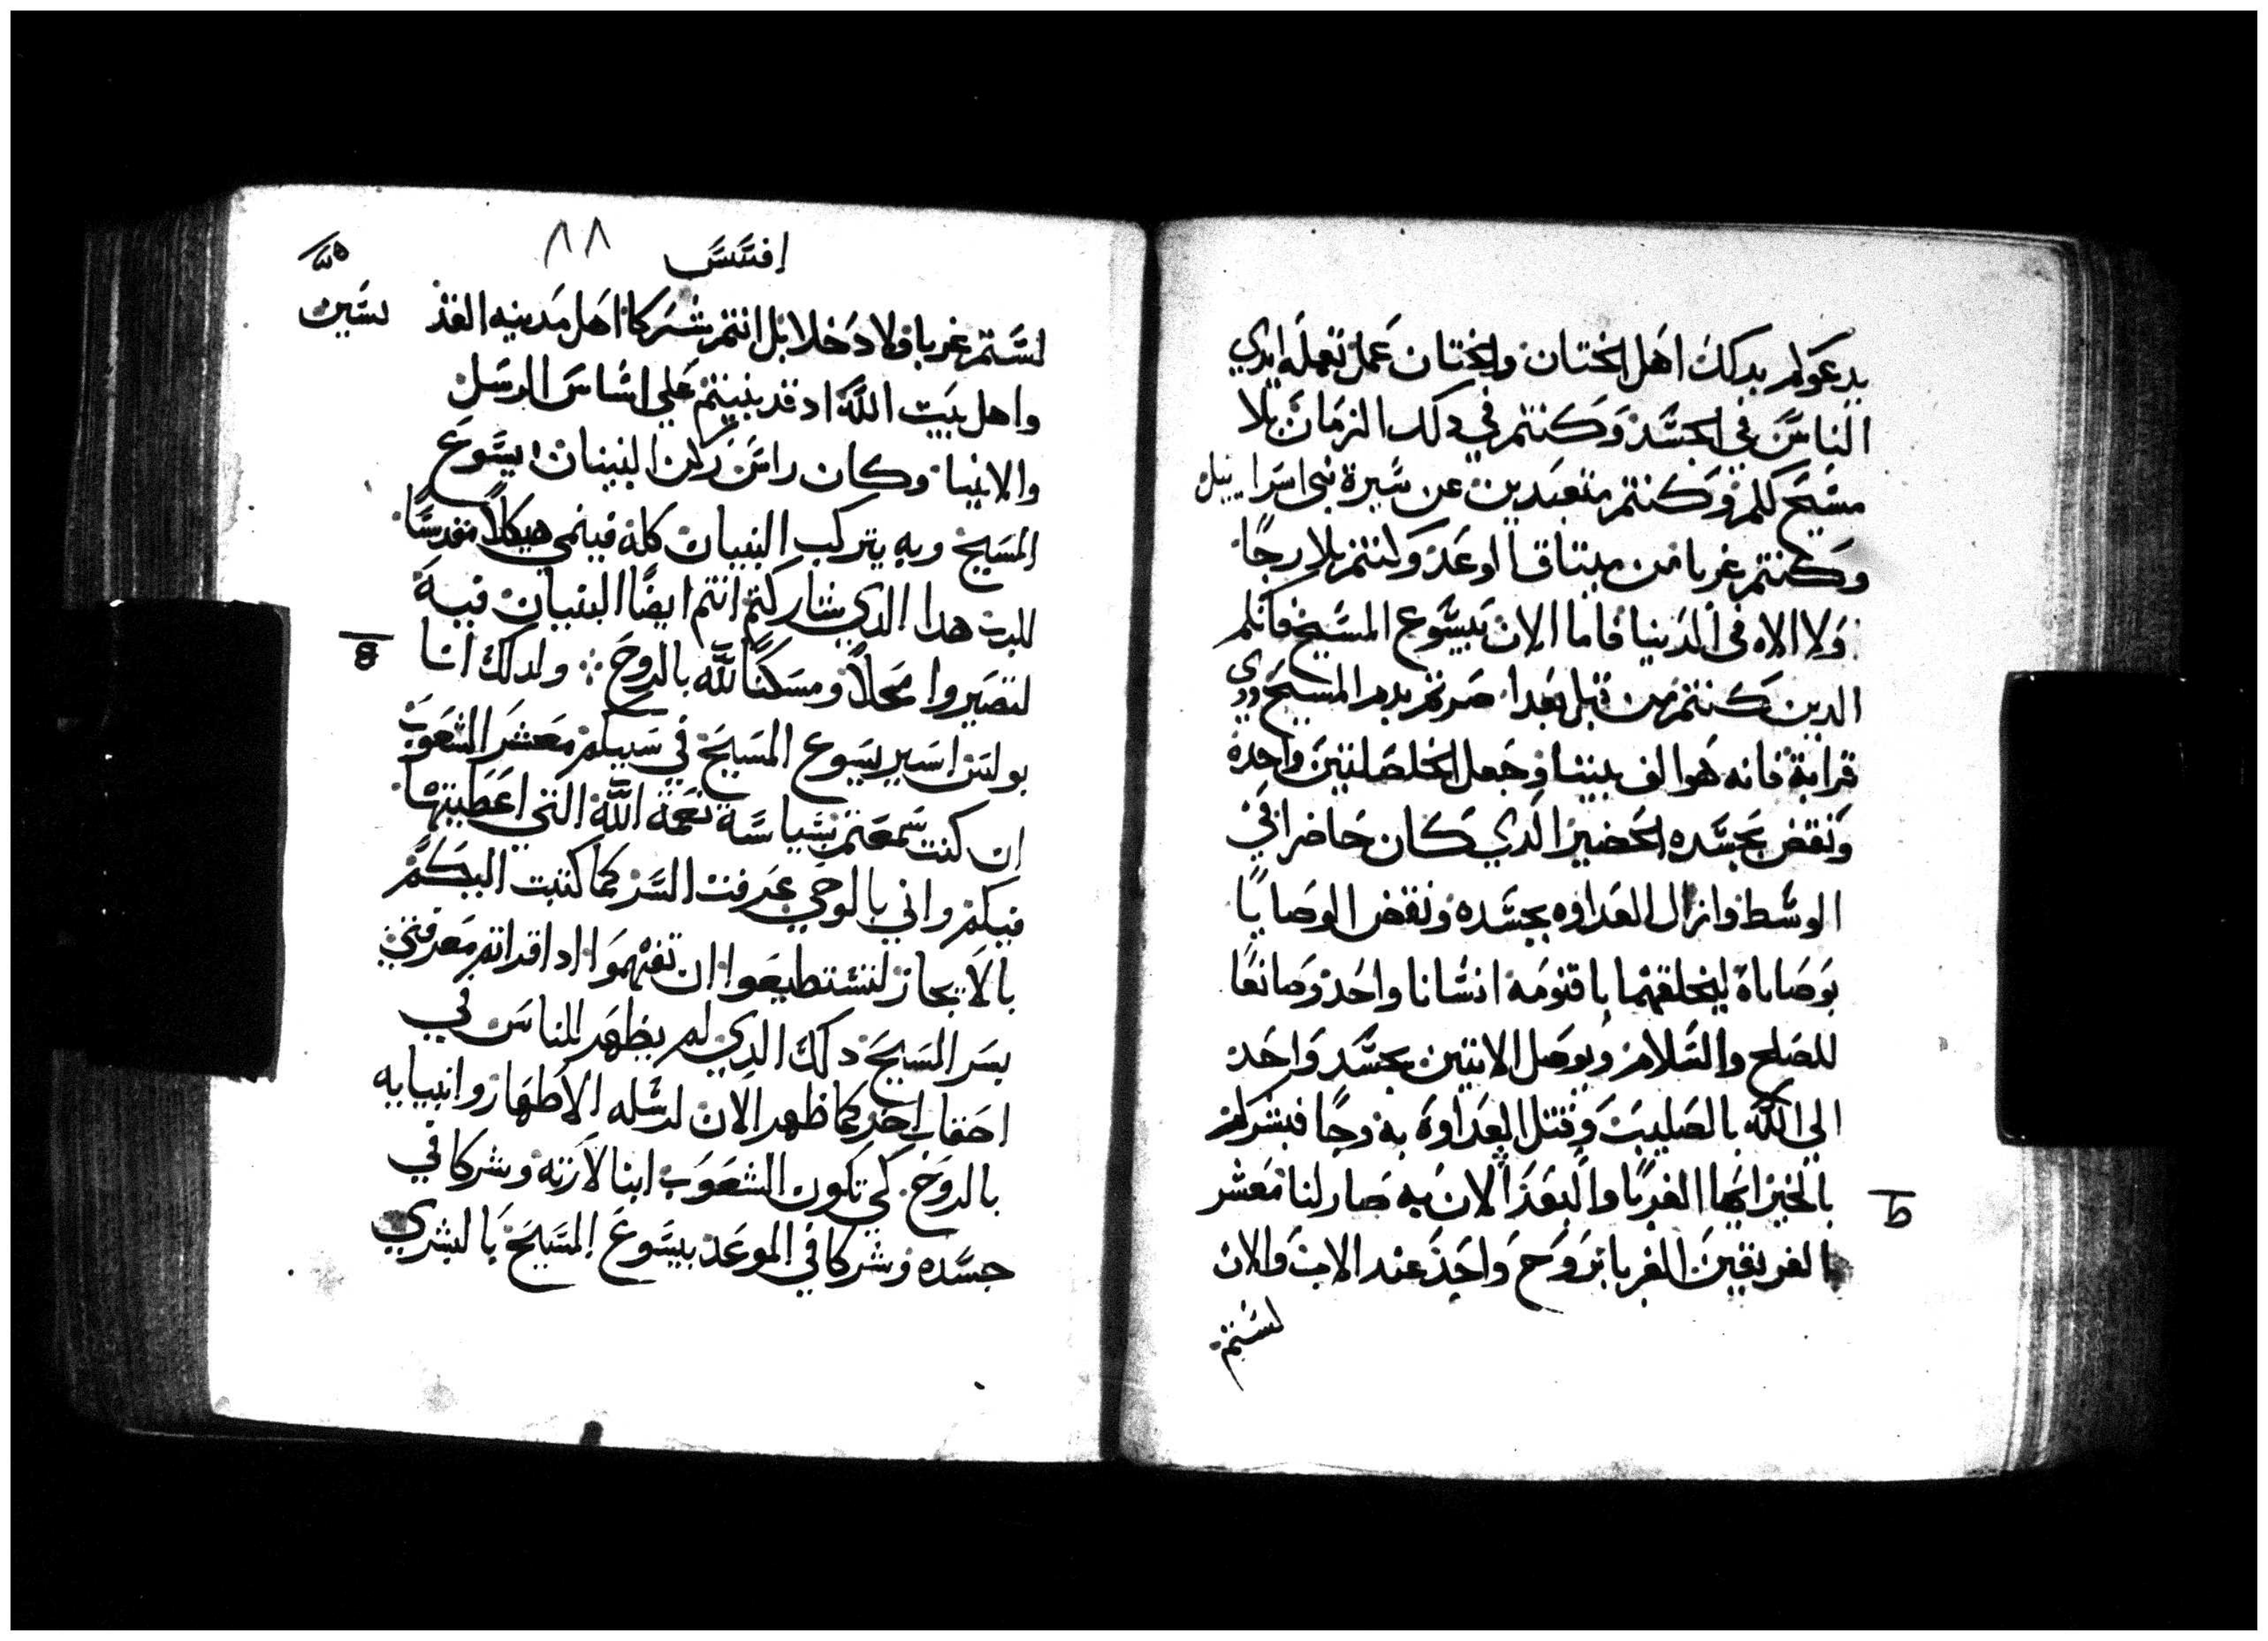 يدعوكم بدلك اهل الختان والختان عمل تعمله ايدي
الناس في الجسد وكنتم في دلك الزمان بلا
مسيح كلكم وكنتم متعبدين عن سيرة بني اسراييل
وكنتم غربا من ميتاق الوعد وكنتم بلا رجا
ولا الاه في الدنيا فاما الان بيسوع المسيح فانكم
الدين كنتم من قبل بعدا صرتم بدم المسيح دوي
قرابة فانه هو الف بيننا وجعل الخلصلتين واحدة
ونقض بجسده الحضير الدي كان حاضرا في
الوسط وازال العداوه بجسده ونقض الوصايا
بوصاياه ليخلقهما باقنومه انسانا واحد وصانعا
للصلح والسلام ويوصل الاتنين بجسد واحد
الي الله بالصليب وقتل العداوة به وجا فبشركم
بالخير ايها الغربا والبعد الان به صار لنا معشر
الفريقين الغربا بروح واحد عند الاب والان
لستم
افسس
٨٨
لستم غربا ولا دخلا بل انتم شركا اهل مدينه القد يسين
واهل بيت الله اد قد بنيتم علي اساس الرسل
والانبيا وكان راس ركن البنيان يسوع
المسيح وبه يتركب البنيان كله فينمي هيكلا مقدسا
للرب هدا الدي شاركتم انتم ايضا البنيان فيه
لتصيروا محلا ومسكنا لله بالروح ÷ ولدلك انا
بولس اسير يسوع المسيح في سبيلكم معشر الشعوب
ان كنت سمعتم بسياسة نعمة الله التي اعطيتها
فيكم واني بالوحي عرفت السر كما كتبت اليكم
بالايجاز لتستطيعوا ان تفهموا ادا قراتم معرفتي
بسر المسيح دلك الدي لم يظهر للناس في
احقاب اخر كما ظهر الان لرسله الاطهار وانبيايه
بالروح كي تكون الشعوب ابنا لارته وشركا في
جسده وشركا في الموعد بيسوع المسيح بالبشري